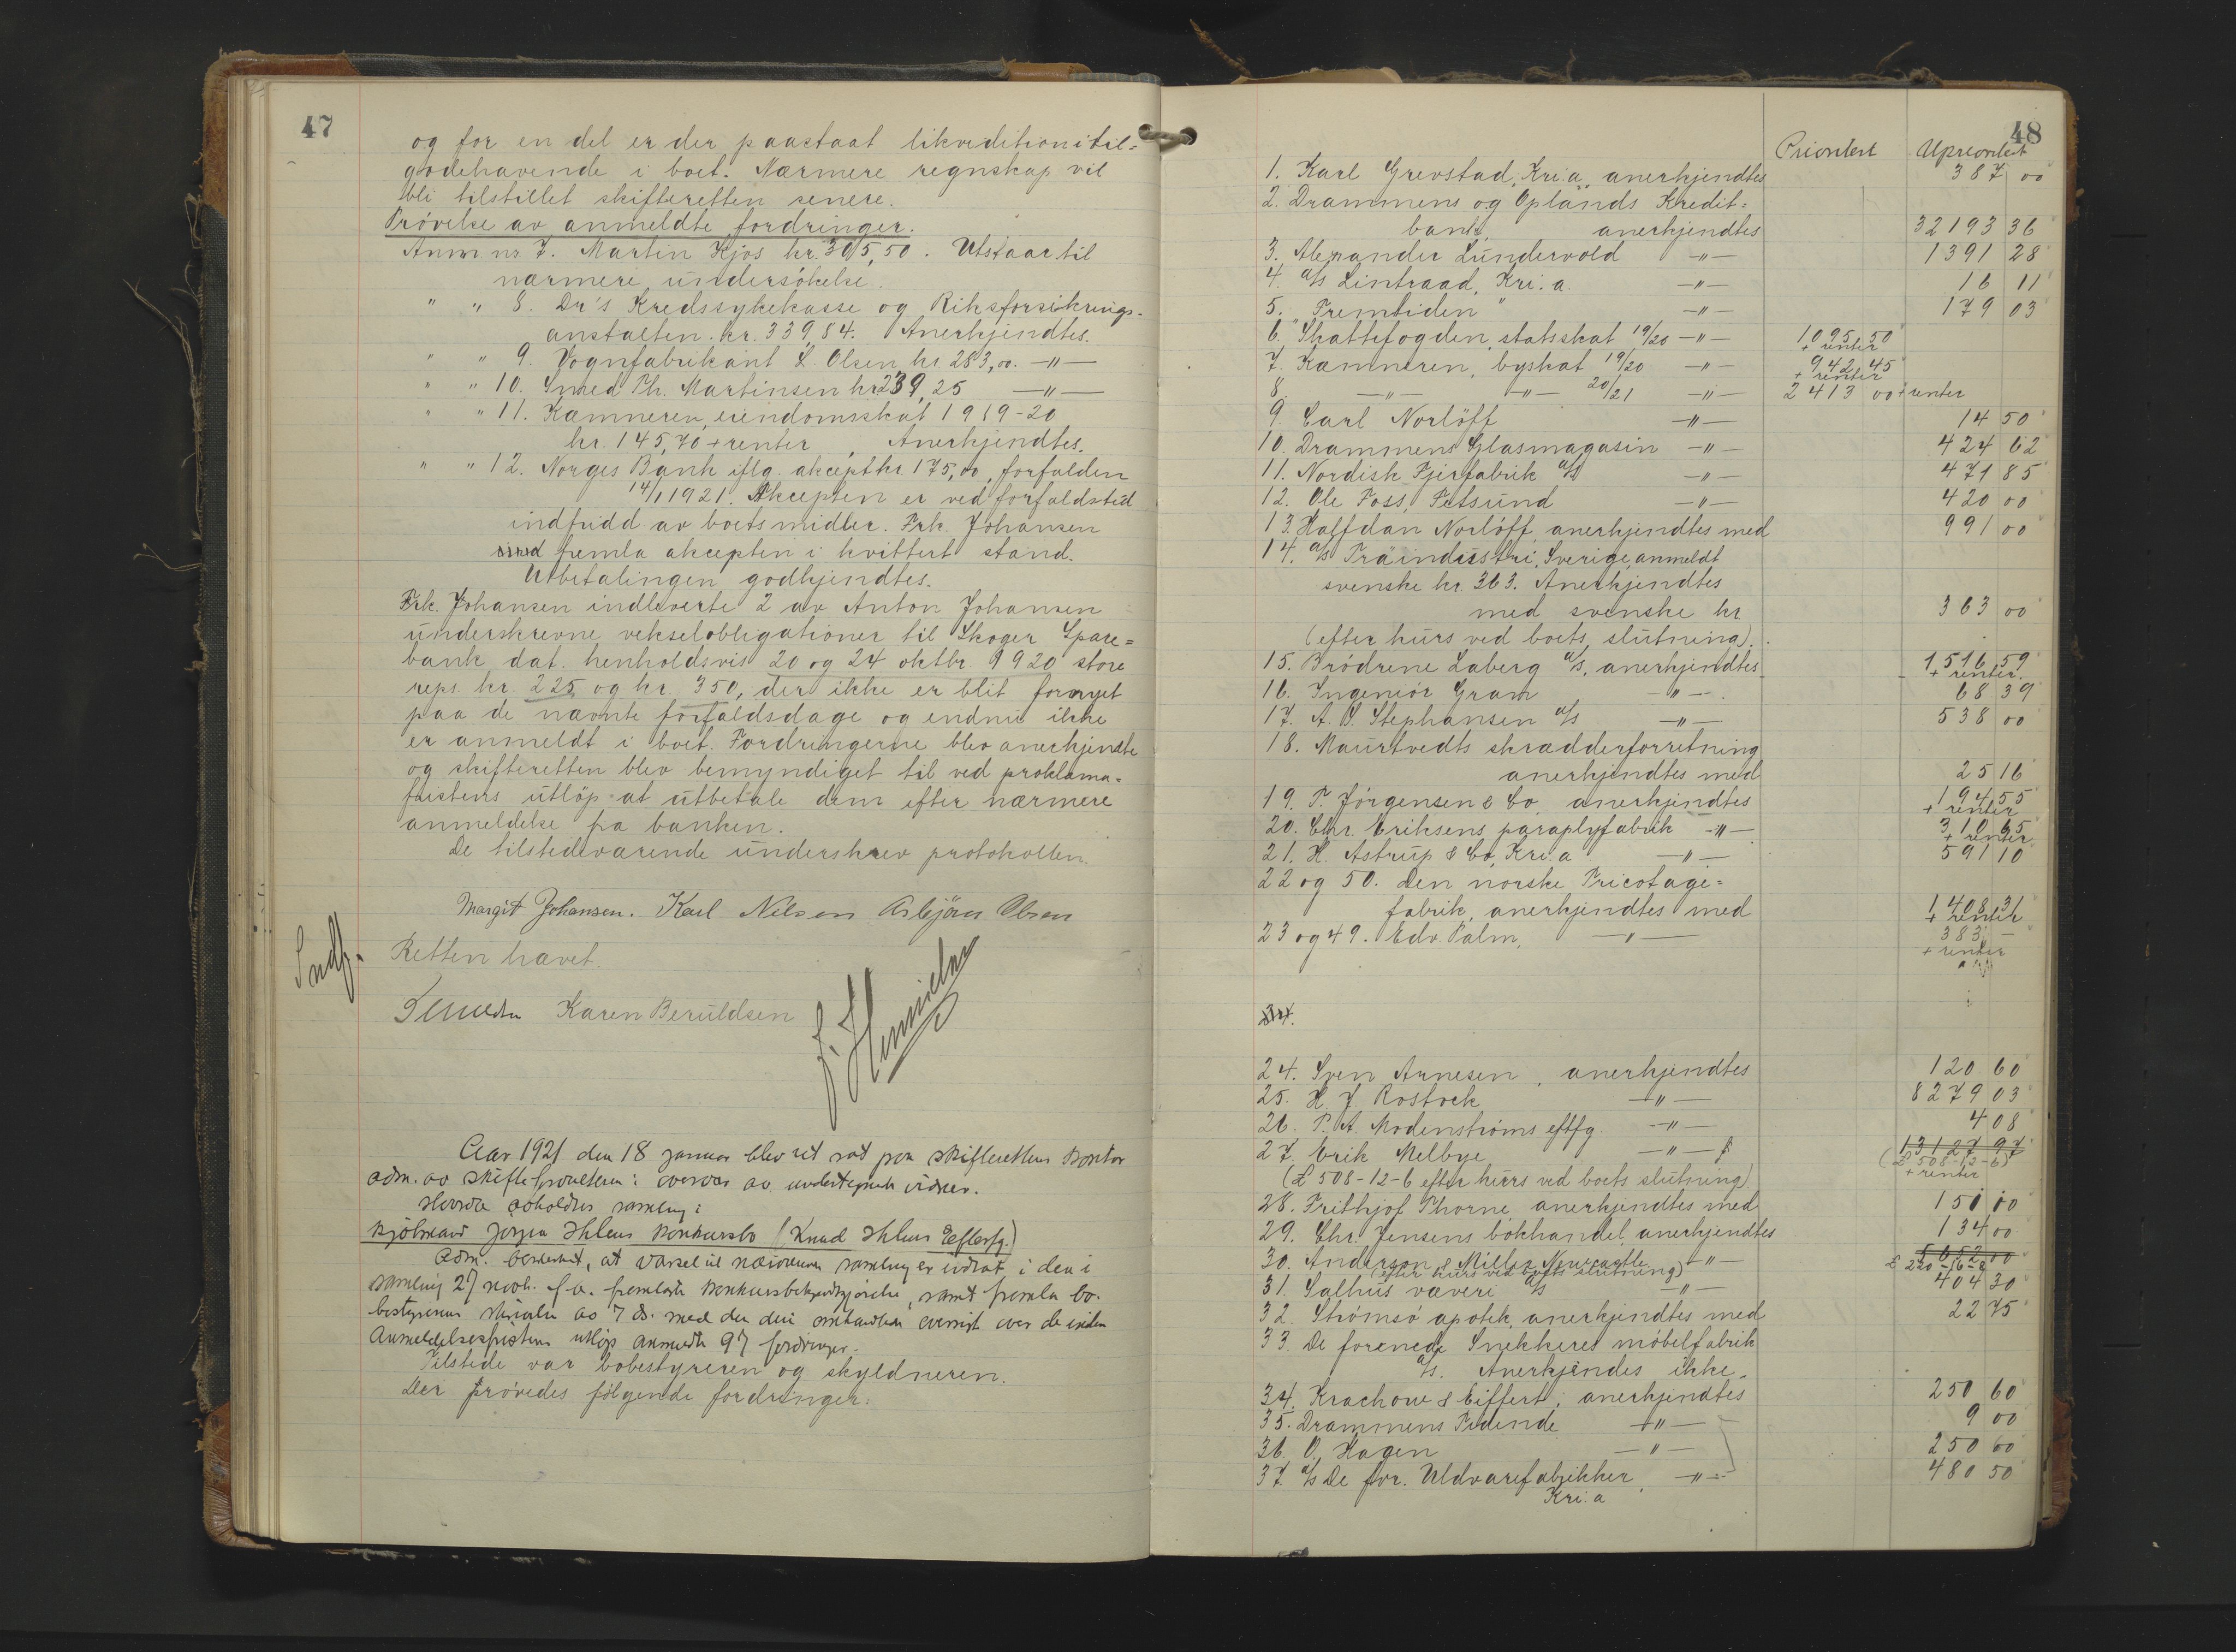 47
og for en del er der paastaat likviditioni til=
godehavende i boet. Nærmere regnskap vil
bli tilstillet skifteretten senere.
Prövelse av anmeldte fordringer.
Anm nr. 7. Martin Kjos kr. 305,50. Utstaar til
nærmere undersökelse.
" " 8. Dr's Kredssykekasse og Riksforsikrings-
anstalten. kr. 339,84. Anerkjendtes.
" " 9. Vognfabrikant L. Olsen kr. 283,00. —"—
" " 10. Smed Th. Martinsen kr. 239,25 —"—
" " 11. Kæmneren, eiendomsskat 1919-20
kr. 145,70 + renter, Anerkjendtes.
" " 12. Norges Bank iflg. akcept kr. 175,00, forfalden
14/1 1921. Akcepten er ved forfaldstid
indfridd av boets midler. Frk. Johansen
fremla akcepten i kvittert stand.
Utbetalingen godkjendtes.
Frk. Johansen indleverte 2 av Anton Johansen
underskrevne vekselobligationer til Skoger Spare=
bank, dat. henholdsvis 20 og 24 oktbr. 1920 store
resp. kr. 225 og kr. 350, der ikke er blit fornyet
paa de nævnte forfaldsdage og endnu ikke
er anmeldt i boet. Fordringerne blev anerkjendte
og skifteretten blev bemyndiget til ved proklama=
fristens utlöp at utbetale dem efter nærmere
anmeldelse fra banken.
De tilstedeværende underskrev protokollen.
Margit Johansen. Karl Nilsen Asbjörn Olsen
Retten hævet.
Karen Beruldsen
Aar 1921 den 18 januar blev ret sat paa skifterettens kontor
adm. av skifteforvalteren: overvær av undertegnede vidner.
Hvorda avholdtes samling i
kjöbmand Jörgen Ihlens konkursbo (Knud Ihlens Efterfg.)
Adm. bemerket, at varsel til nærværende samling er utstedt i den i
samling 27 novb. f.a. fremlagte konkursbekjendtgjörelse, samt fremla bo-
bestyrerens skrivelse av 7 ds. med den deri omhandlede oversigt over de inden
Anmeldelsesfristens utlöp anmeldte 97 fordringer.
Tilstede var bobestyreren og skyldneren.
Der prövedes fölgende fordringer:
48
Prioritert Uprioritert
1. Karl Grevstad, Kr.a., anerkjendtes 387 00
2. Drammens og Oplands Kredit=
bank, anerkjendtes 32193 36
3. Alexander Lundervold —"— 1391 28
4. a/s Lintraad, Kri.a. —"— 16 11
5. " Fremtiden " —"— 179 03
6. Skattefogden, statsskat 19/20 —"— 1095 50
+ renter
7. Kæmneren, byskat 19/20 —"— 942 45
+ renter
8. —"— —"— 20/21 —"— 2413 00 + renter
9. Carl Norlöff —"— 14 50
10. Drammens Glasmagasin —"— 424 62
11. Nordisk Fjerfabrik a/s —"— 471 85
12. Ole Foss, Fetsund —"— 420 00
13. Halfdan Norlöff, anerkjendtes med 991 00
14. a/s Träindustri, Sverige, anmeldt
svenske kr. 363. Anerkjendtes
med svenske kr. 363 00
(efter kurs ved boets slutning).
15. Brödrene Laberg a/s, anerkjendtes 1516 59
+ renter.
16. Ingeniör Gram —"— 68 39
17. A. S. Stephansen a/s —"— 538 00
18. Maurtvedts skrædderforretning
anerkjendtes med 25 16
19. P. Jörgensen & Co. anerkjendtes 194 55
+ renter
20. Chr. Eriksens paraplyfabrik —"— 310 65
+ renter
21. H. Astrup & Co, Kri.a —"— 591 10
22 og 50. Den norske Tricotage=
fabrik, anerkjendtes med 1408 31
+ renter
23 og 49. Edv. Palm, —"— 383 —
+ renter
24. Sven Arnesen, anerkjendtes 120 60
25. H. J. Rostock —"— 8279 03
26. P. A. Modenströms eftfg. —"— 408
27. Erik Melbye —"— 13127 97
(£ 508-12-6)
+ renter
(£ 508-12-6 efter kurs ved boets slutning)
28. Frithjof Thorne anerkjendtes med 151 00
29. Chr. Jensens bokhandel, anerkjendtes 134 00
30. Anderson & Miller Newcastle —"— 5652 00
£ 220-16-8
(efter kurs ved boets slutning)
31. Salhus væveri a/s —"— 404 30
32. Strömsö apotek, anerkjendtes med 22 75
33. De forenede Snekkeres möbelfabrik
a/s. Anerkjendes ikke.
34. Krachow & Eiffert, anerkjendtes 250 60
35. Drammens Tidende —"— 9 00
36. O. Hagen —"— 250 60
37. a/s De for. Uldvarefabrikker, —"— 480 50
Kri.a